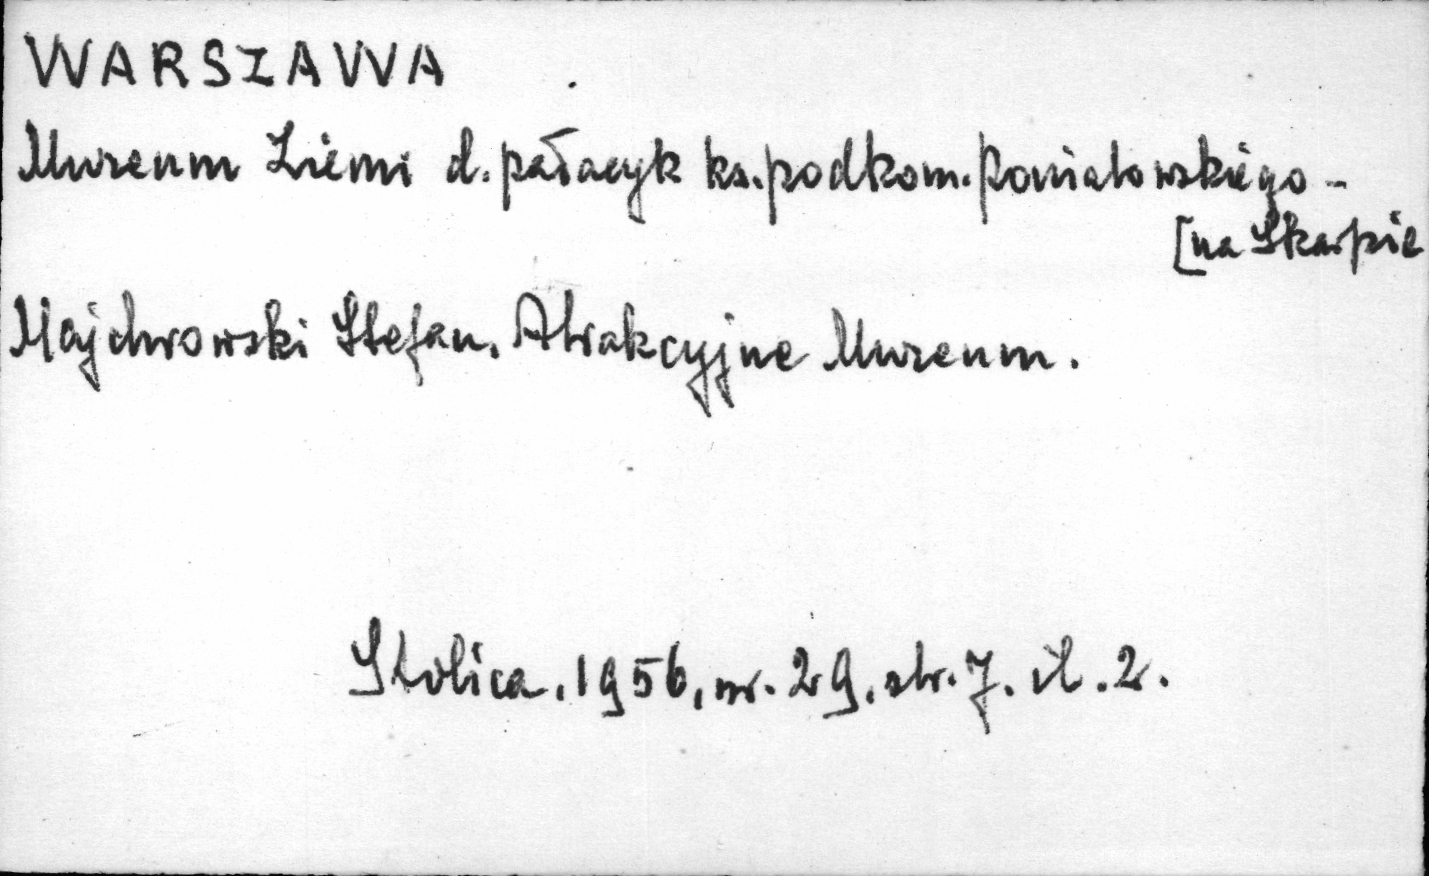 WARSZAWA
Muzeum Ziemi d. pałacyk ks. podkom. Poniatowskiego -
[na Skarpie
Majchrowski Stefan. Atrakcyjne Muzeum.
Stolica. 1956, nr. 29, str. 7. il. 2.